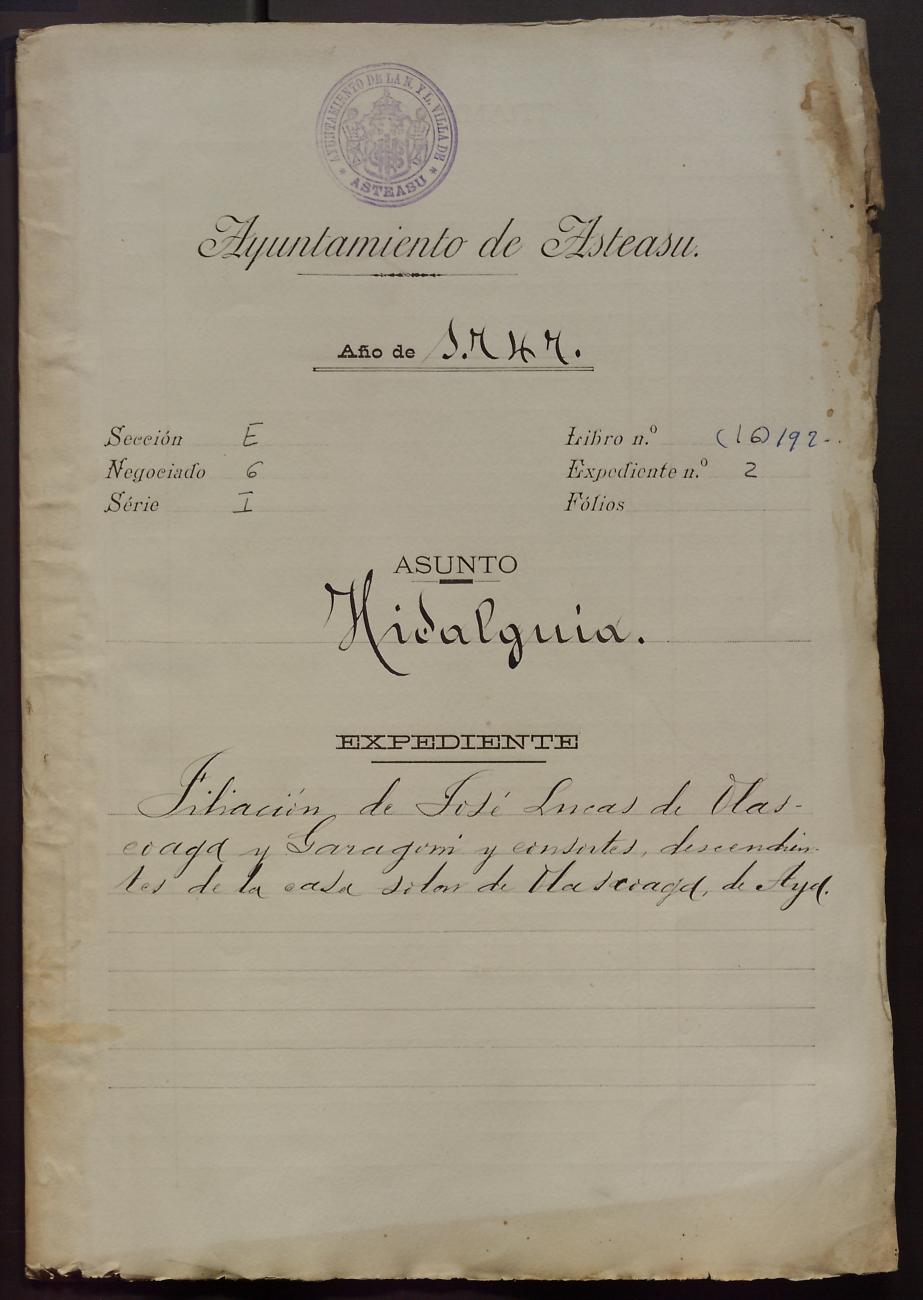 AYUNTAMIENTO DE LA N. Y L. VILLA DE
* ASTEASU *
Ayuntamiento de Asteasu.
Año de 1.747.
Sección E
Libro n.º (16) 192-
Negociado 6
Expediente n.º 2
Série I
Fólios
ASUNTO
Hidalguia.
EXPEDIENTE
Filiación de José Lucas de Olas-
coaga y Garagorri y consortes, descendien-
tes de la casa solar de Olascoaga, de Aya.